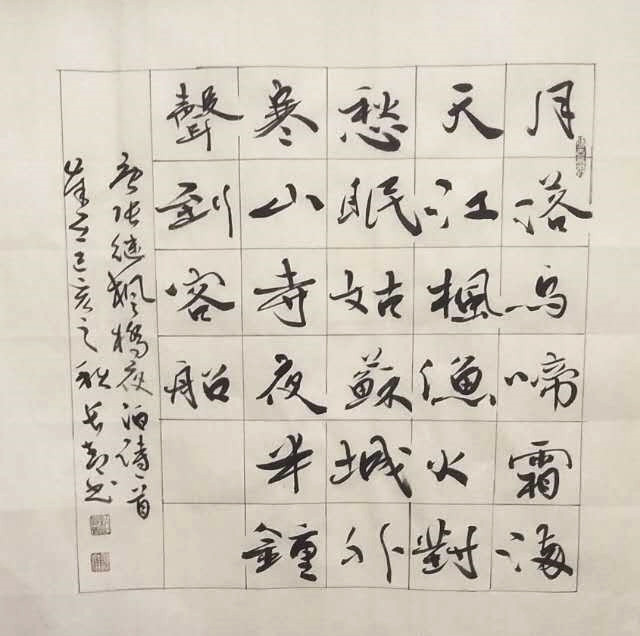 月落烏啼霜滿
天江楓漁火對
愁眠姑蘇城外
寒山寺夜半鐘
聲到客船
唐张继楓橋夜泊詩一首
己亥之秋书